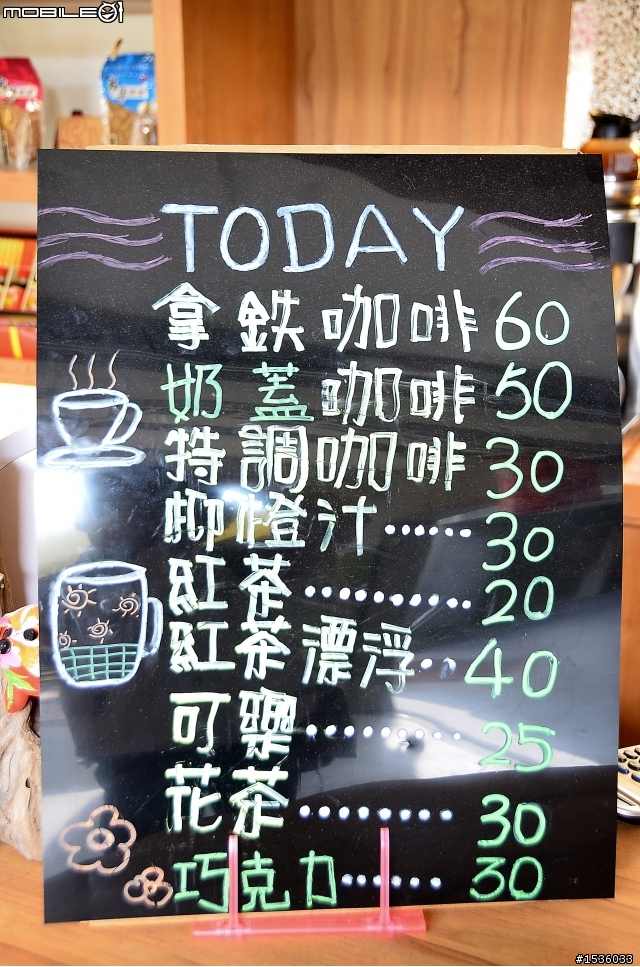 MOBILE01
TODAY
拿鉄咖啡 60
奶蓋咖啡 50
特調咖啡 30
柳橙汁…… 30
紅茶……… 20
紅茶漂浮‥ 40
可樂……… 25
花茶……… 30
巧克力…… 30
#1536033